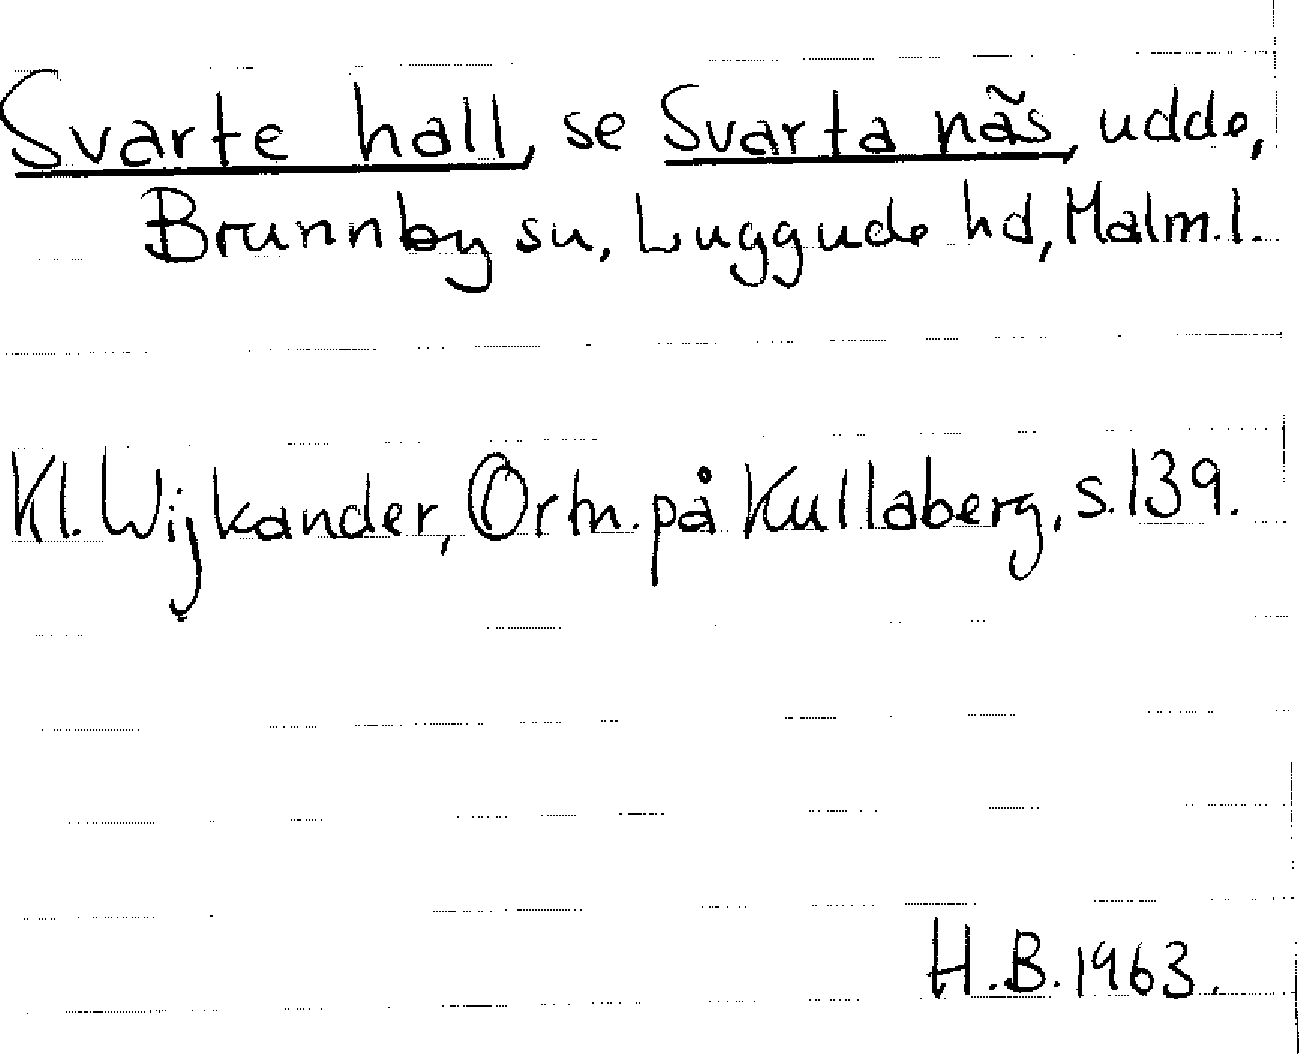 Svarte hall, se Svarta näs, udde,
Brunnby sn, Luggude hd, Malm.l.
Kl. Wijkander, Ortn. på Kullaberg, s. 139.
H.B. 1963.